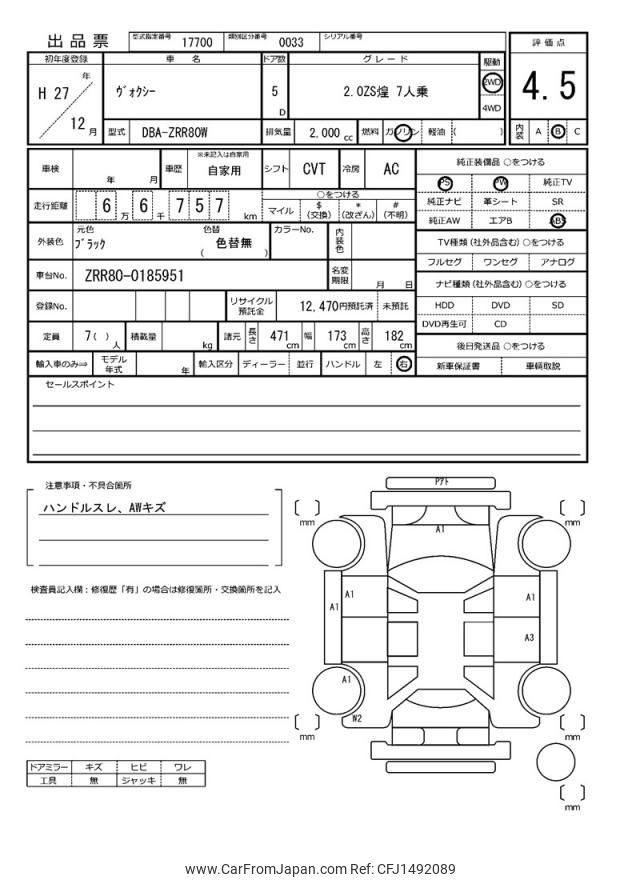 出品票 型式指定番号 17700 類別区分番号 0033 シリアル番号
評価点
4.5
内装 A B C
初年度登録 車名 ドア数 グレード 駆動
H 27 年 12 月
ヴォクシー 5 D 2.0ZS煌 7人乗 2WD 4WD
型式 DBA-ZRR80W 排気量 2,000 cc 燃料 ガソリン 軽油 ( )
車検 年 月 車歴 ※未記入は自家用 自家用 シフト CVT 冷房 AC
走行距離 6 万 6 千 7 5 7 km
○をつける
マイル $ (交換) * (改ざん) # (不明)
外装色 元色 ブラック 色替 色替無 ( ) カラーNo. 内装色
車台No. ZRR80-0185951 名変期限 月 日
登録No. リサイクル預託金 12,470円預託済 未預託
定員 7( ) 人 積載量 kg 諸元 長さ 471 cm 幅 173 cm 高さ 182 cm
輸入車のみ⇒ モデル年式 年 輸入区分 ディーラー 並行 ハンドル 左 右
純正装備品 ○をつける
PS PW 純正TV
純正ナビ 革シート SR
純正AW エアB ABS
TV種類(社外品含む)○をつける
フルセグ ワンセグ アナログ
ナビ種類(社外品含む)○をつける
HDD DVD SD
DVD再生可 CD
後日発送品 ○をつける
新車保証書 車輌取説
セールスポイント
注意事項・不具合箇所
ハンドルスレ、AWキズ
検査員記入欄:修復歴「有」の場合は修復箇所・交換箇所を記入
ドアミラー キズ ヒビ ワレ
工具 無 ジャッキ 無
Pアト
A1
mm
mm
A1
A1
A1
A3
A1
W2
mm
mm
mm
www.CarFromJapan.com Ref: CFJ1492089